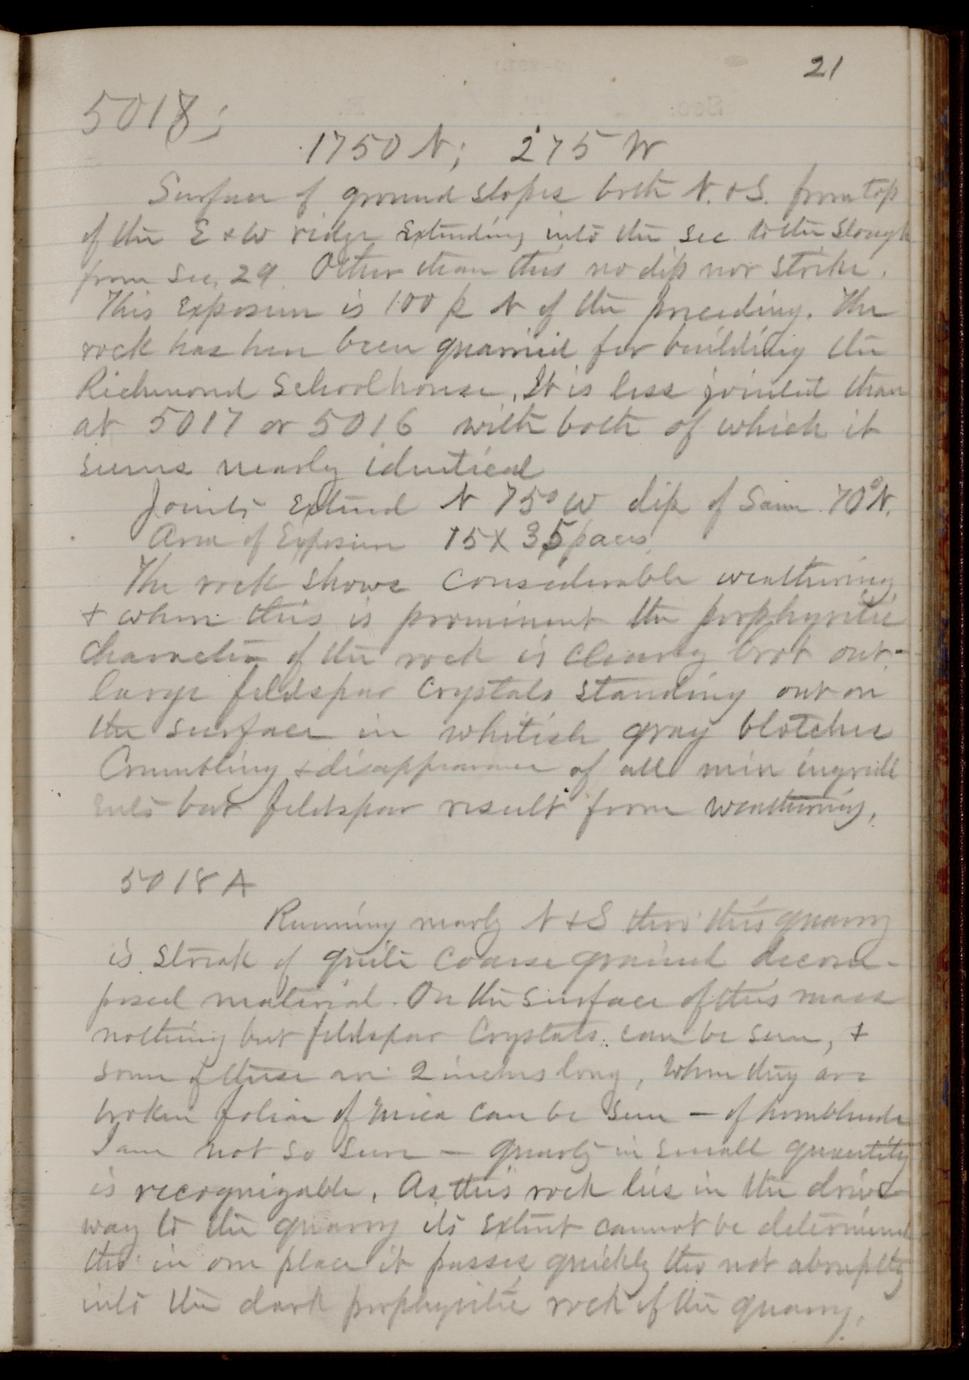 21
5018;
1750 N; 275 W
Surface of ground slopes both N. & S. from top
of the E & W ridge extending into the sec to the slough
from Sec. 29. Other than this no dip nor strike.
This exposure is 100 p N of the preceding. The
rock has been quarried for building the
Richmond Schoolhouse. It is less jointed than
at 5017 or 5016 with both of which it
seems nearly identical
Joints extend N 75° W dip of same 70° N.
Area of Exposure 75 X 35 paces.
The rock shows considerable weathering
& where this is prominent the porphyritic
character of the rock is clearly brot out-
large feldspar crystals standing out on
the surface in whitish gray blotches
Crumbling & disappearance of all min ingredi
ents but feldspar result from weathering.
5018 A
Running nearly N & S thro' this quarry
is streak of quite coarse grained decom-
posed material. On the surface of this mass
nothing but feldspar crystals can be seen, &
some of these are 2 inches long, When they are
broken foliae of mica can be seen - of hornblende
I am not so sure - quartz in small quantity
is recognizable. As this rock lies in the drive
way to the quarry its extent cannot be determined
tho' in one place it passes quickly tho not abruptly
into the dark porphyritic rock of the quarry.